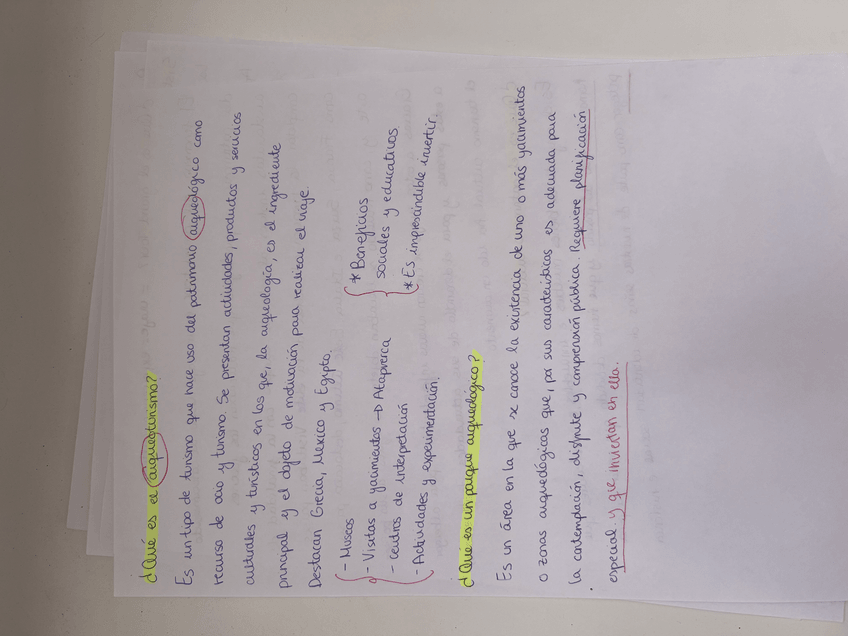 ¿Qué es el arqueoturismo?
Es un tipo de turismo que hace uso del patrimonio arqueológico como
recurso de ocio y turismo. Se presentan actividades, productos y servicios
culturales y turísticos en los que, la arqueología, es el ingrediente
principal y el objeto de motivación para realizar el viaje.
Destacan Grecia, México y Egipto.
- Museos
- Visitas a yacimientos → Atapuerca
- Centros de interpretación
- Actividades y experimentación.
* Beneficios
sociales y educativos
* Es imprescindible invertir.
¿Qué es un parque arqueológico?
Es un área en la que se conoce la existencia de uno o más yacimientos
o zonas arqueológicas que, por sus características es adecuada para
la contemplación, disfrute y comprensión pública. Requiere planificación
especial y que inviertan en ella.